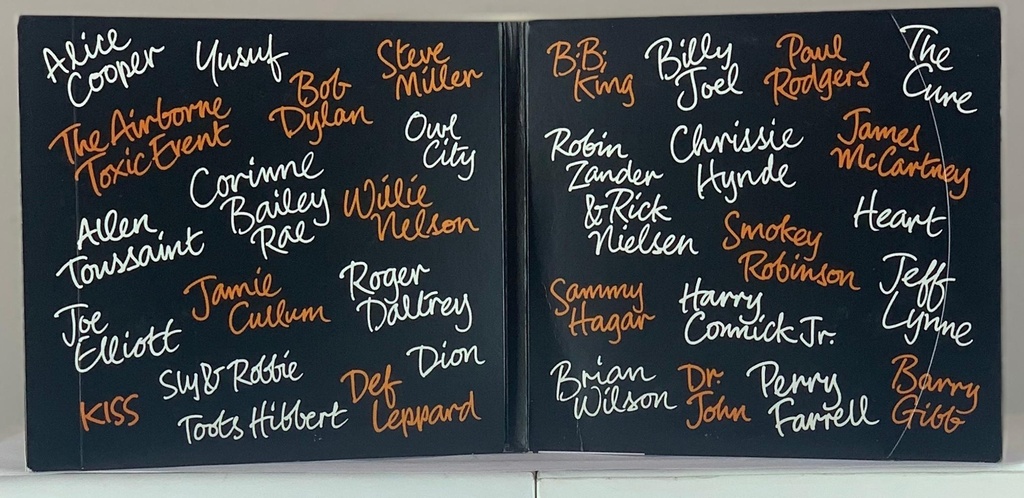 Alice
Cooper
Yusuf
Steve
Miller
Bob
Dylan
The Airborne
Toxic Event
Owl
City
Corinne
Bailey
Rae
Willie
Nelson
Allen
Toussaint
Jamie
Cullum
Roger
Daltrey
Joe
Elliott
Sly & Robbie
Dion
KISS
Toots Hibbert
Def
Leppard
B.B.
King
Billy
Joel
Paul
Rodgers
The
Cure
Robin
Zander
& Rick
Nielsen
Chrissie
Hynde
James
McCartney
Smokey
Robinson
Heart
Sammy
Hagar
Harry
Connick Jr.
Jeff
Lynne
Brian
Wilson
Dr.
John
Perry
Farrell
Barry
Gibb